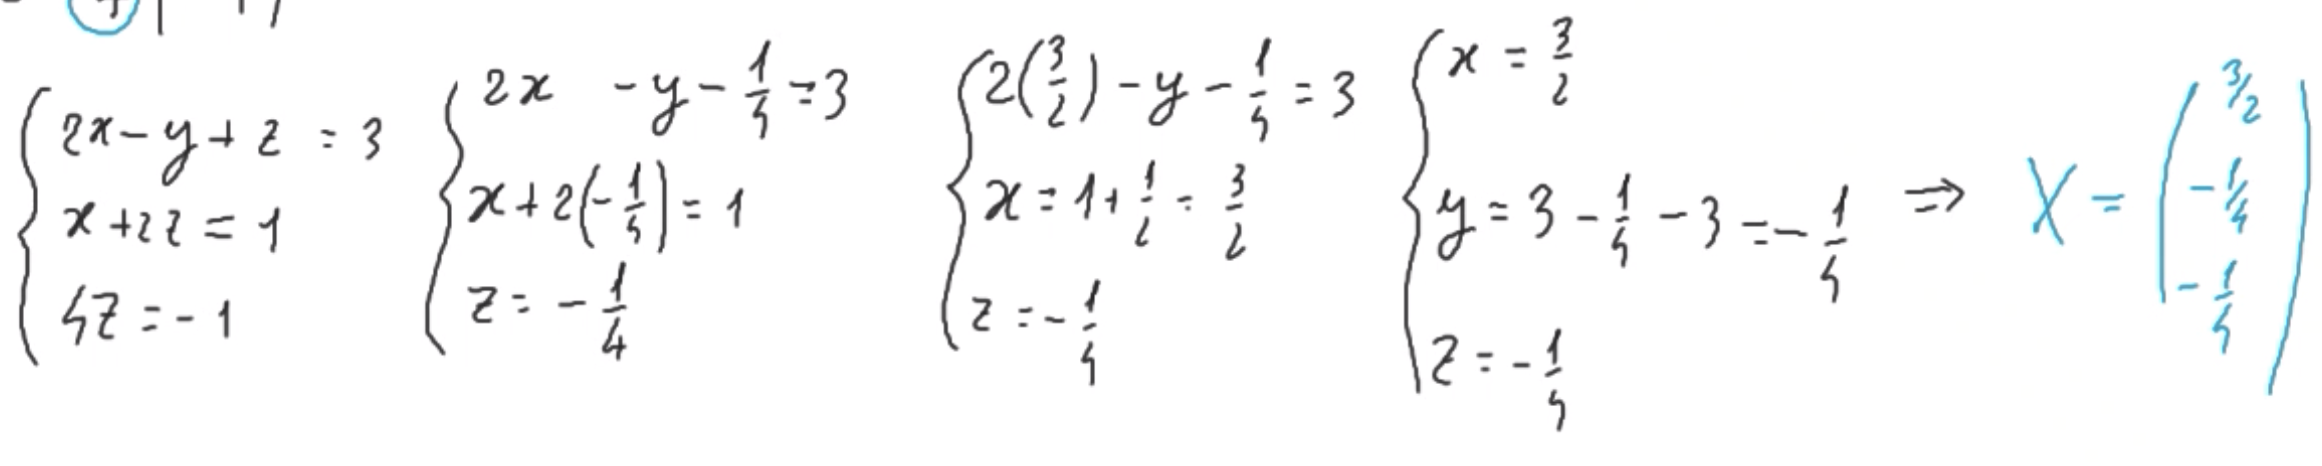 2x - y + z = 3
x + 2z = 1
4z = -1
2x - y - 1/4 = 3
x + 2(-1/4) = 1
z = -1/4
2(3/2) - y - 1/4 = 3
x = 1 + 1/2 = 3/2
z = -1/4
x = 3/2
y = 3 - 1/4 - 3 = -1/4
z = -1/4
⇒ X = (3/2
-1/4
-1/4)